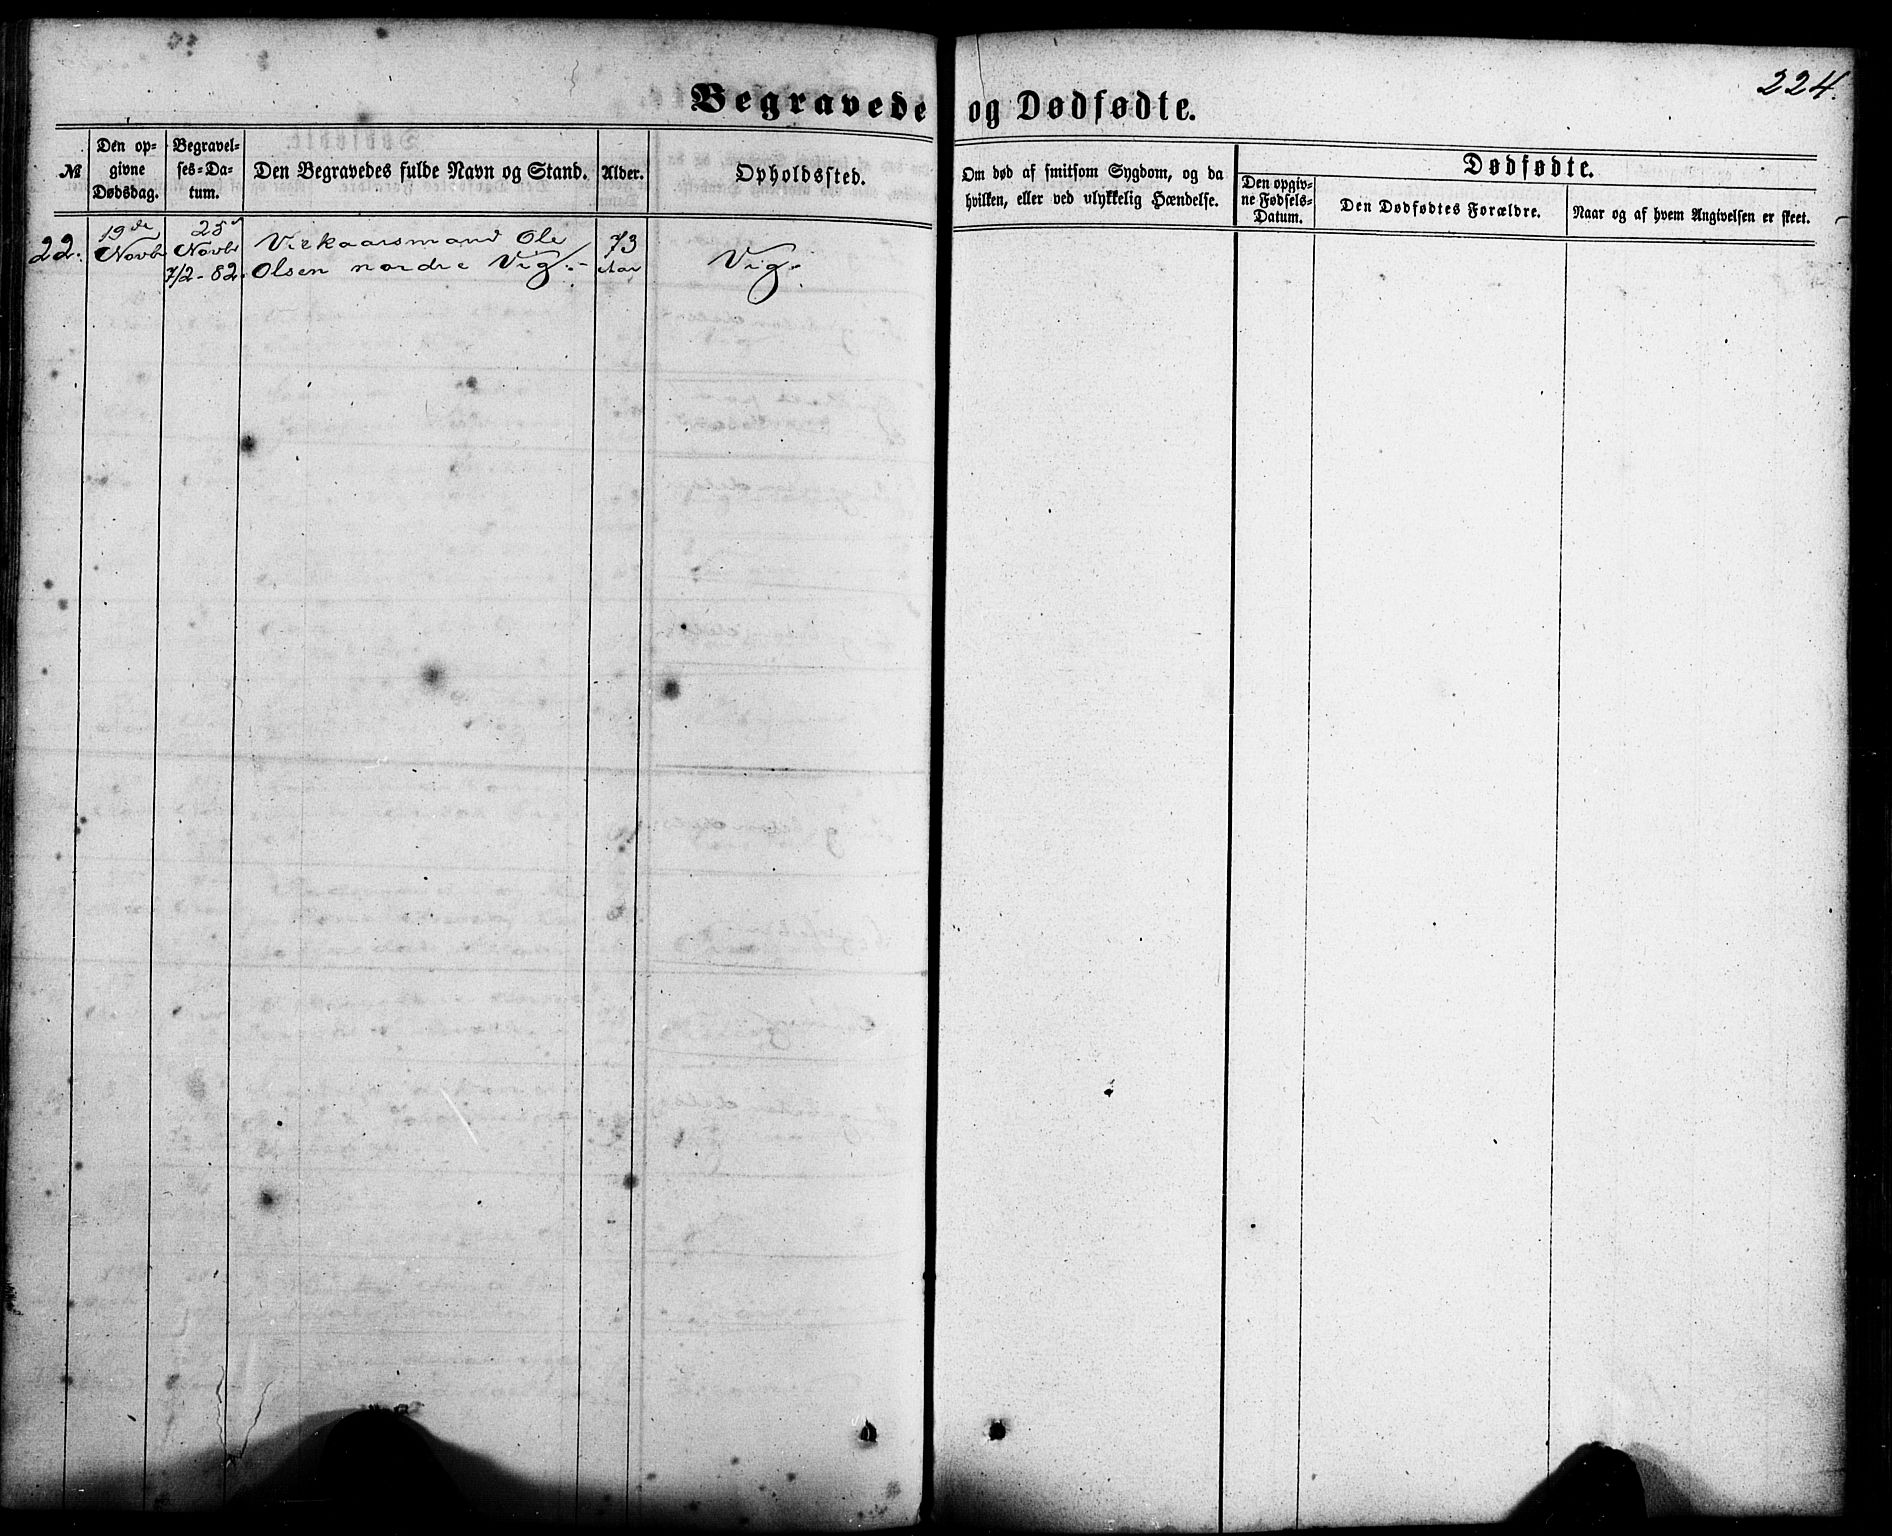 224.
Begravede og Dødfødte.
№
Den op-
givne
Dødsdag.
Begravel-
ses-Da-
tum.
Den Begravedes fulde Navn og Stand.
Alder.
Opholdssted.
Om død af smitsom Sygdom, og da
hvilken, eller ved ulykkelig Hændelse.
Dødfødte.
Den opgiv-
ne Fødsels-
Datum.
Den Dødfødtes Forældre.
Naar og af hvem Angivelsen er skeet.
22.
19de
Novb
Novbr
7/2-82.
Virkaarsmand Ole
Olsen nordre Vig.-
73
Aar
Vig.